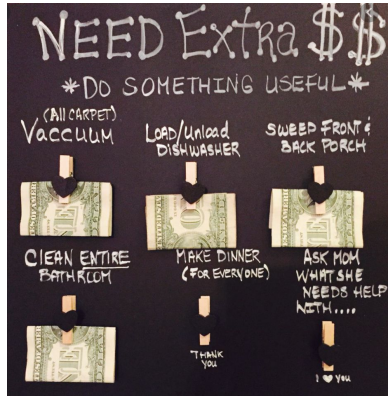 NEED Extra $$$
*DO SOMETHING USEFUL*
(All CARPET)
VACCUUM
LOAD/Unload
DISHWASHER
SWEEP FRONT &
BACK PORCH
CLEAN ENTIRE
BATHROOM
MAKE DINNER
(FOR EVERYONE)
THANK
YOU
ASK MOM
WHAT SHE
NEEDS HELP
WITH....
I ♥ YOU